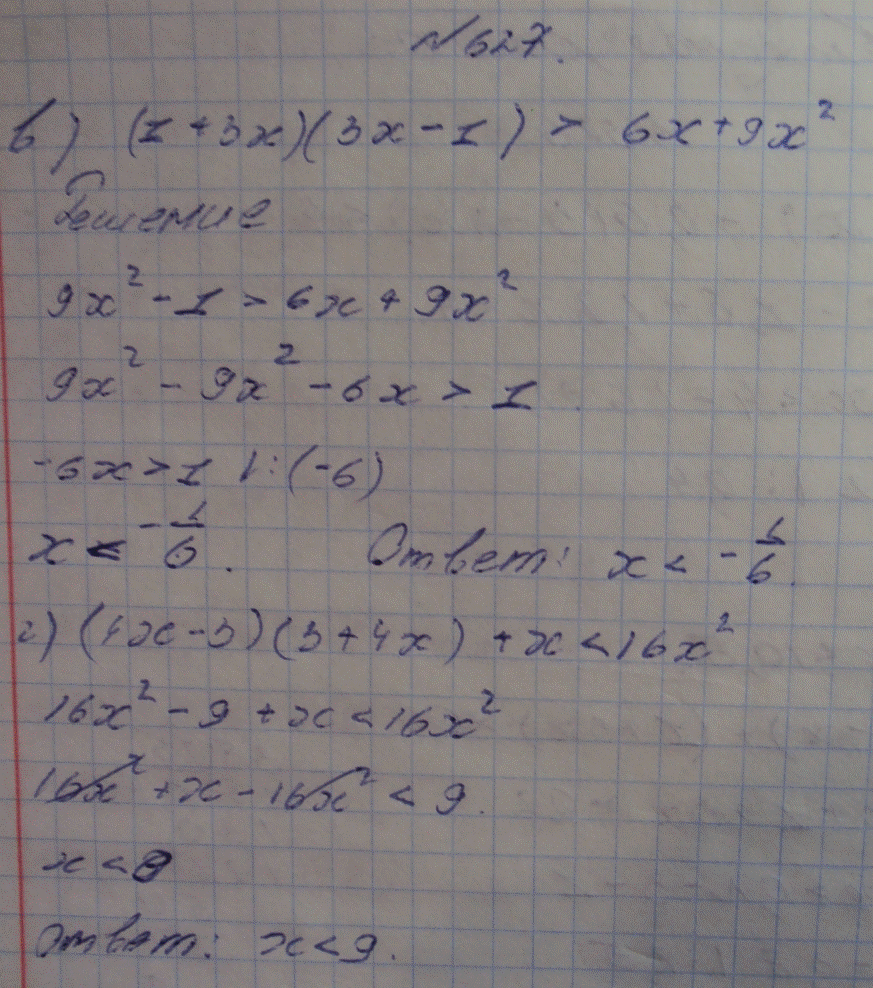 №627.
в) (1+3x)(3x-1) > 6x+9x²
Решение
9x²-1>6x+9x²
9x²-9x²-6x>1
-6x>1 |:(-6)
x<-1/6. Ответ: x<-1/6.
г) (4x-3)(3+4x)+x<16x²
16x²-9+x<16x²
16x²+x-16x²<9.
x<9
Ответ: x<9.